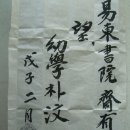 易東書院 齋有
望
幼學 朴汶
戊子 二月